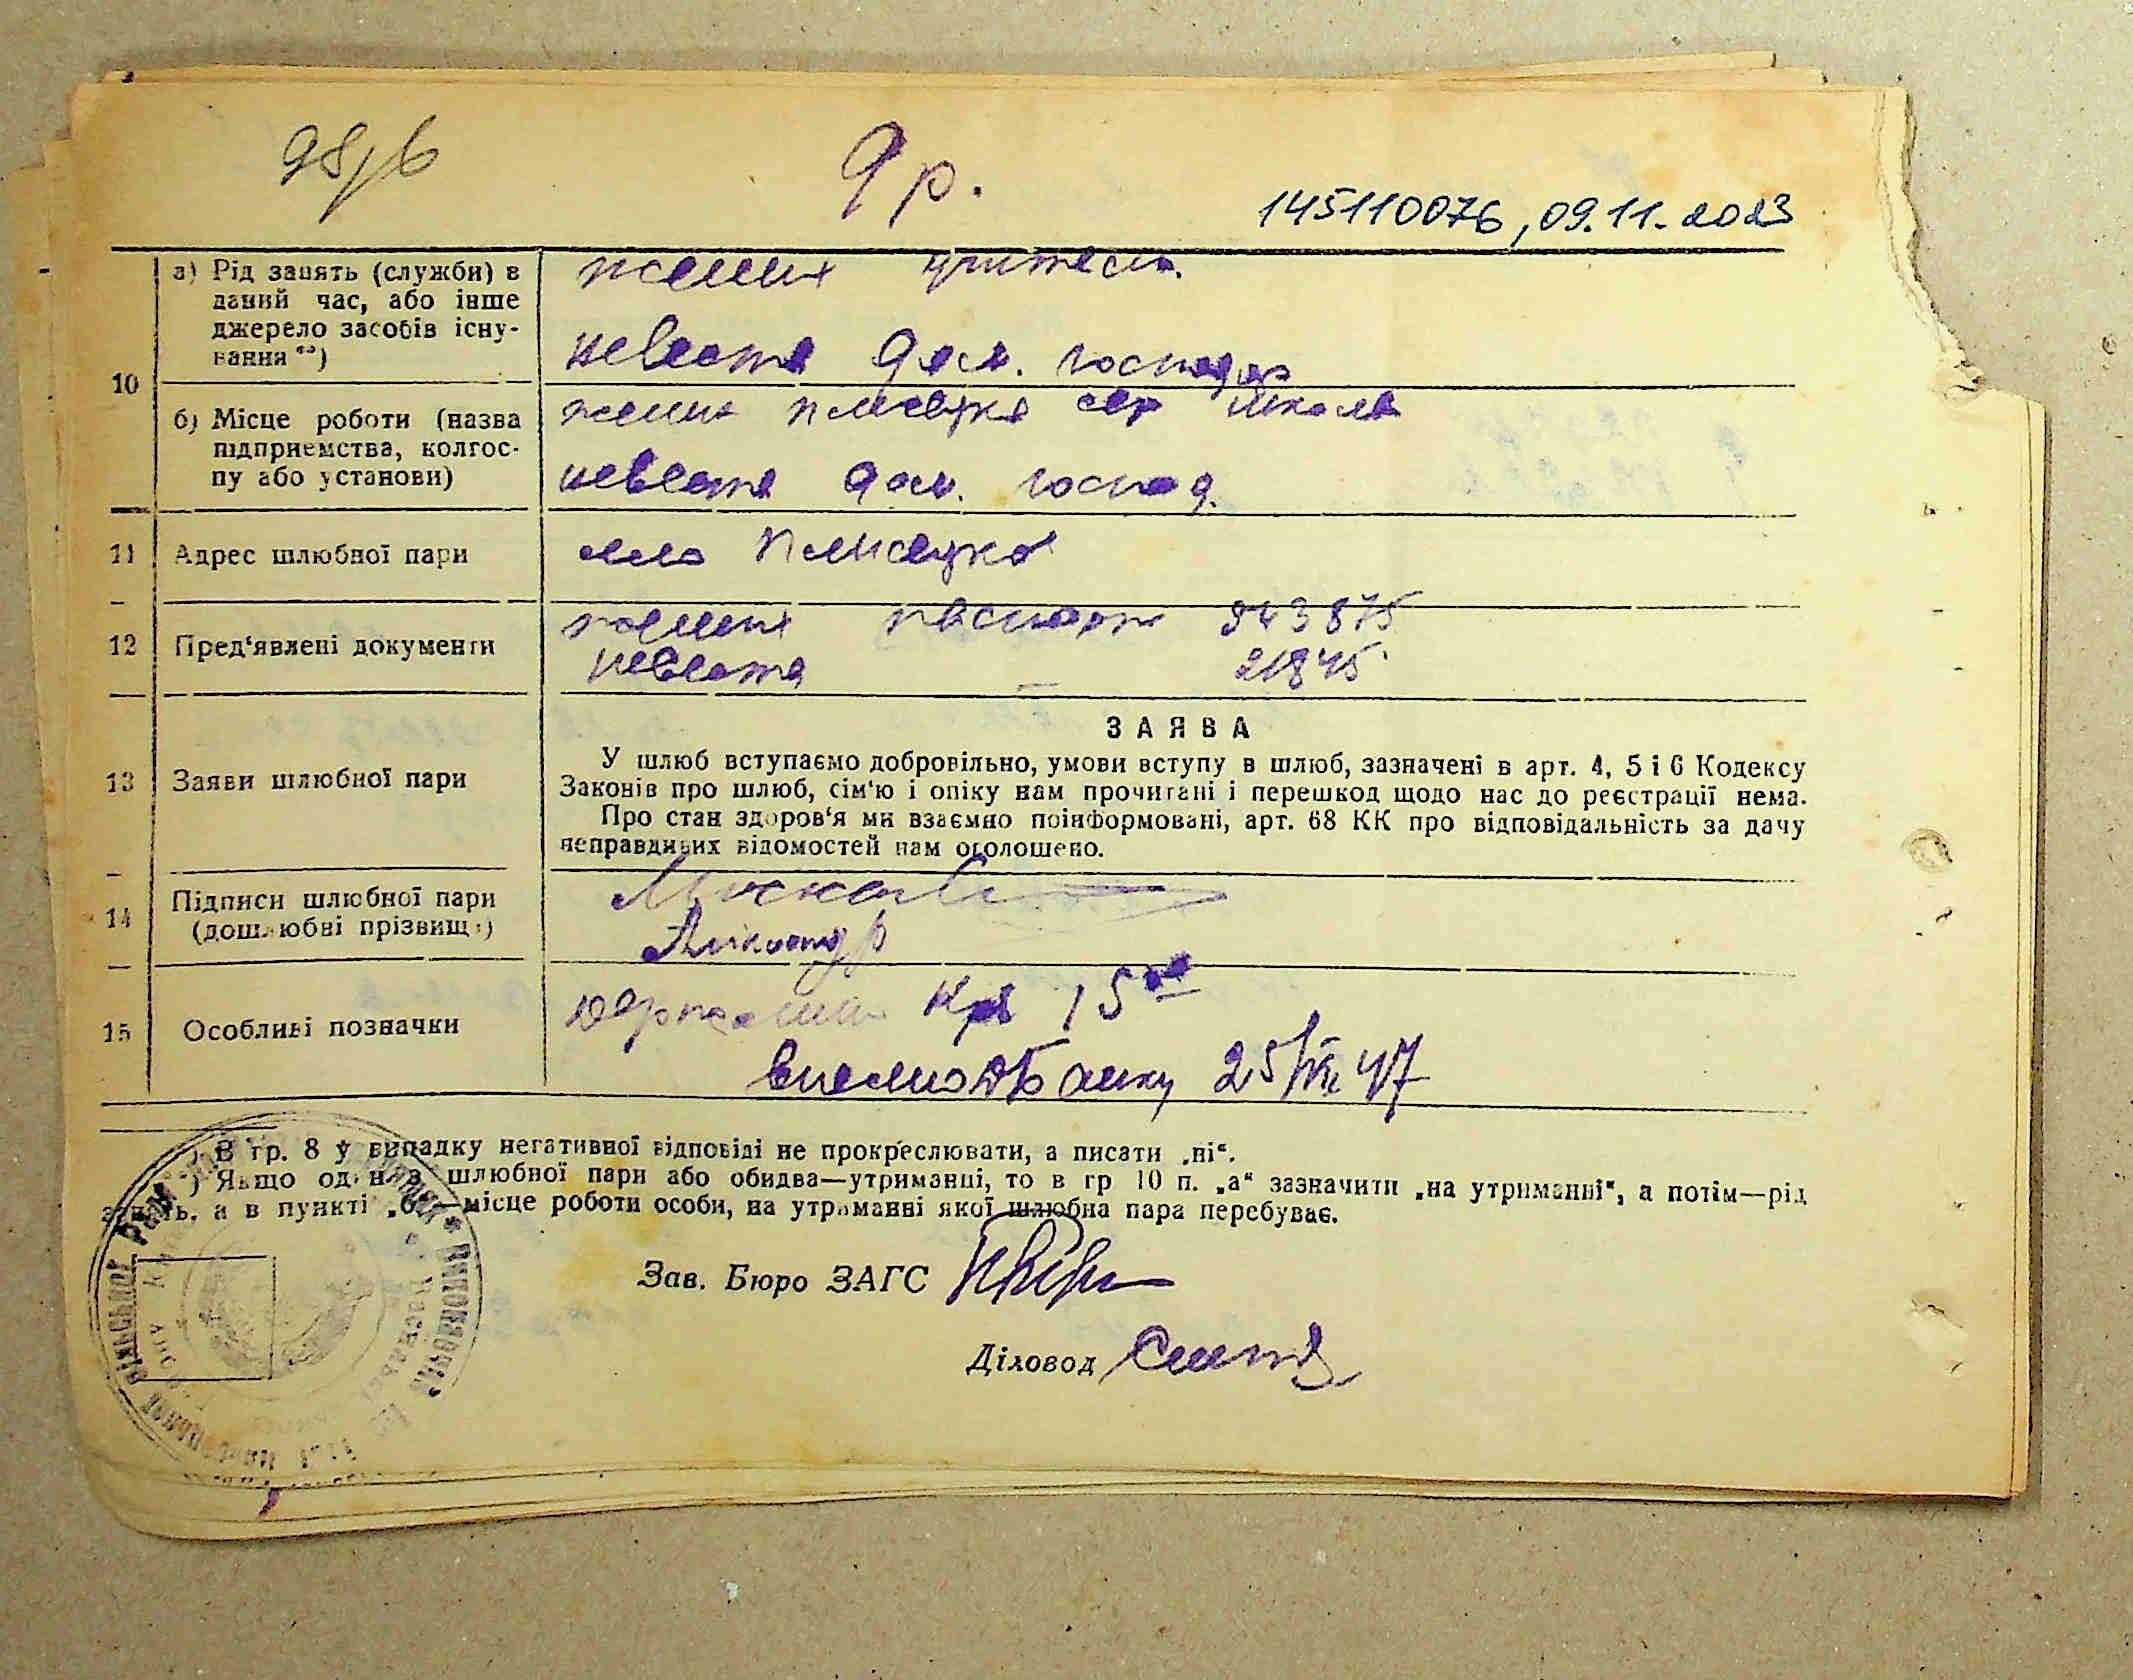 9 р.
145110076, 09.11.2023
10
а) Рід занять (служби) в
даний час, або інше
джерело засобів існу-
вання **)
жених учитель
невеста дом. господар
б) Місце роботи (назва
підприємства, колгос-
пу або установи)
жених Плисецка сер школа
невеста дом. господ.
11 Адрес шлюбної пари
село Плисецко
12 Пред'явлені документи
жених паспорт 943875
невеста — 21845
13 Заяви шлюбної пари
ЗАЯВА
У шлюб вступаємо добровільно, умови вступу в шлюб, зазначені в арт. 4, 5 і 6 Кодексу
Законів про шлюб, сім'ю і опіку нам прочитані і перешкод щодо нас до реєстрації нема.
Про стан здоров'я ми взаємно поінформовані, арт. 68 КК про відповідальність за дачу
неправдивих відомостей нам оголошено.
14 Підписи шлюбної пари
(дошлюбні прізвищ)
15 Особливі позначки
15
25/VII 47
) В гр. 8 у випадку негативної відповіді не прокреслювати, а писати „ні“.
) Якщо один з шлюбної пари або обидва—утриманці, то в гр 10 п. „а“ зазначити „на утриманні“, а потім—рід
занять, а в пункті „б“—місце роботи особи, на утриманні якої шлюбна пара перебуває.
Зав. Бюро ЗАГС
Діловод